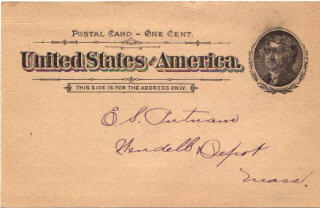 POSTAL CARD – ONE CENT.
United States of America.
THIS SIDE IS FOR THE ADDRESS ONLY.
E. S. Putnam
Wendell Depot
Mass.